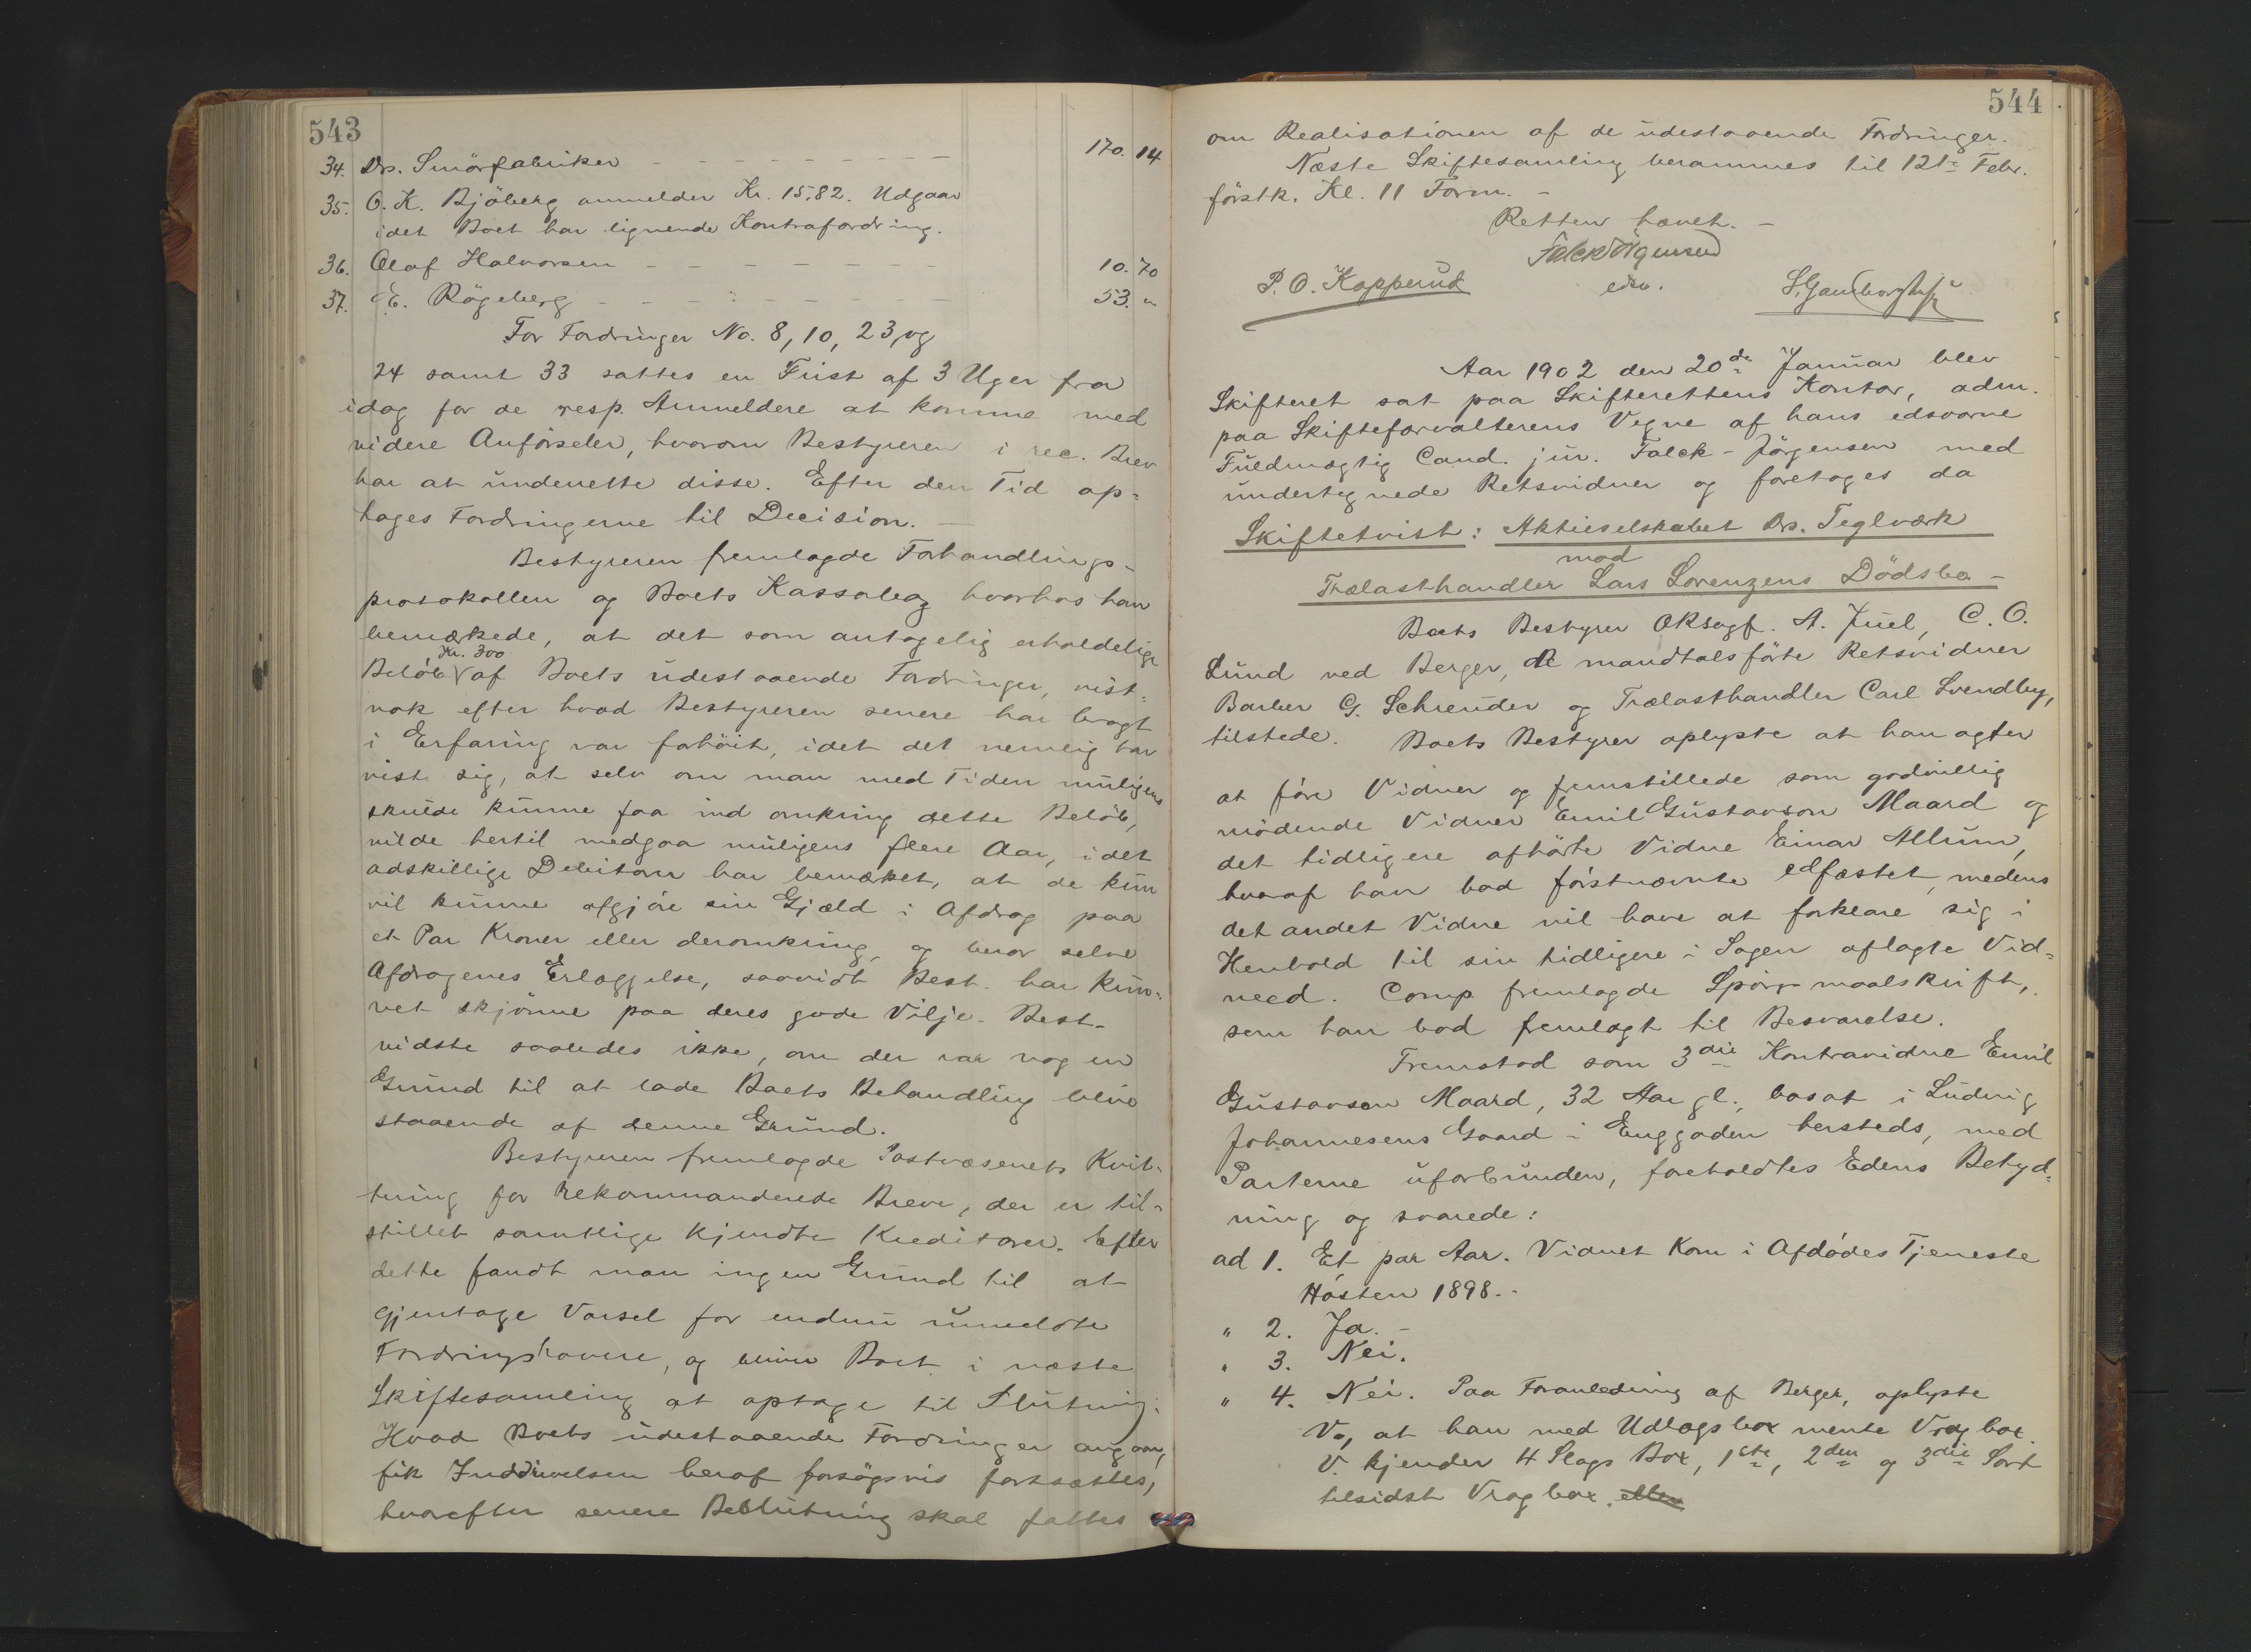 543
34. Drs. Smörfabriker - - - - - - - - - 170. 14
35. O. K. Bjöberg anmelder Kr. 15.82. Udgaar
idet Boet har lignende Kontrafordring.
36. Olaf Halvorsen - - - - - - - 10. 70
37. E. Rögeberg - - - - - - - - 53. "
For Fordringer No. 8, 10, 23, og
24 samt 33 sattes en Frist af 3 Uger fra
idag for de resp. Anmeldere at komme med
videre Anförseler, hvorom Bestyreren i rec. Brev
har at underrette disse. Efter den Tid op-
tages Fordringerne til Decision. -
Bestyreren fremlagde Forhandlings-
protokollen og Boets Kassabog hvorhos han
bemærkede, at det som antagelig erholdelige
Kr. 300
Belöb af Boets udestaaende Fordringer, vist-
nok efter hvad Bestyreren senere har bragt
i Erfaring var forhöit, idet det nemlig har
vist sig, at selv om man med Tiden muligens
skulde kunne faa ind omkring dette Belöb,
vilde hertil medgaa muligens flere Aar, idet
adskillige Debitorer har bemærket, at de kun
vil kunne afgjöre sin Gjæld i Afdrag paa
et Par Kroner eller deromkring, og beror selve
Afdragenes Erlæggelse, saavidt Best. har kun-
net skjönne paa deres gode Vilje. Best.
vidste saaledes ikke, om der var nogen
Grund til at lade Boets Behandling blive
staaende af denne Grund.
Bestyreren fremlagde Postvæsenets Kvit-
tering for rekommanderede Breve, der er til-
stillet samtlige kjendte Kreditorer. Efter
dette fandt man ingen Grund til at
gjentage Varsel for endnu umeldte
Fordringshavere, og bliver Boet i næste
Skiftesamling at optage til Slutning.
Hvad Boets udestaaende Fordringer angaar,
fik Inddrivelsen heraf forsögsvis fortsættes,
hvorefter senere Beslutning skal fattes
544
om Realisationen af de udestaaende Fordringer.
Næste Skiftesamling berammes til 12te Febr.
förstk. Kl. 11 Form. -
Retten hævet. -
Falck Jörgensen
P. O. Kopperud edsv.
Aar 1902 den 20de Januar blev
Skifteret sat paa Skifterettens Kontor, adm.
paa Skifteforvalterens Vegne af hans edsvorne
Fuldmægtig Cand. jur. Falck-Jörgensen med
undertegnede Retsvidner og foretoges da
Skiftetvist: Aktieselskabet Drs. Teglværk
mod
Trælasthandler Lars Lorenzens Dödsbo -
Boets Bestyrer ORsagf. A. Juel, C. O.
Lund ved Berger, de mandtalsförte Retsvidner
Barber G. Schreuder og Trælasthandler Carl Svendby,
tilstede. Boets Bestyrer oplyste at han agter
at före Vidner og fremstillede som godvillig
mödende Vidner Emil Gustavson Maard og
det tidligere afhörte Vidne Einar Allum,
hvoraf han bad förstnævnte edfæstet, medens
det andet Vidne vil have at forklare sig i
Henhold til sin tidligere i Sagen aflagte Vid-
need. Comp. fremlagde Spörgsmaalskrift,
som han bad fremlagt til Besvarelse.
Fremstod som 3die Kontravidne Emil
Gustavsen Maard, 32 Aar gl., bosat i Ludvig
Johannesens Gaard i Enggaden hersteds, med
Parterne uforbunden, foreholdtes Edens Betyd-
ning og svarede:
ad 1. Et par Aar. Vidnet kom i Afdödes Tjeneste
Hösten 1898. -
" 2. Ja. -
" 3. Nei.
" 4. Nei. Paa Foranledning af Berger, oplyste
V., at han med Udlagsbox mente Vragbox.
V. kjender 4 Slags Box, 1ste, 2den og 3die Sort
tilsidst Vragbox. eller